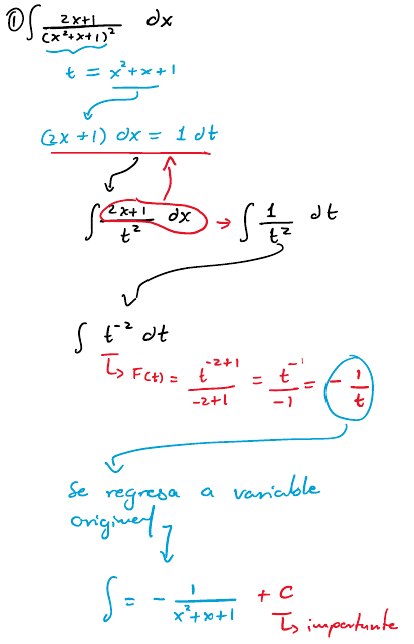 ① ∫ (2x+1)/(x²+x+1)² dx
t = x²+x+1
(2x+1) dx = 1 dt
∫ (2x+1)/t² dx → ∫ 1/t² dt
∫ t⁻² dt
F(t) = t⁻²⁺¹/(-2+1) = t⁻¹/(-1) = - 1/t
Se regresa a variable
original
∫ = - 1/(x²+x+1) + C
importante